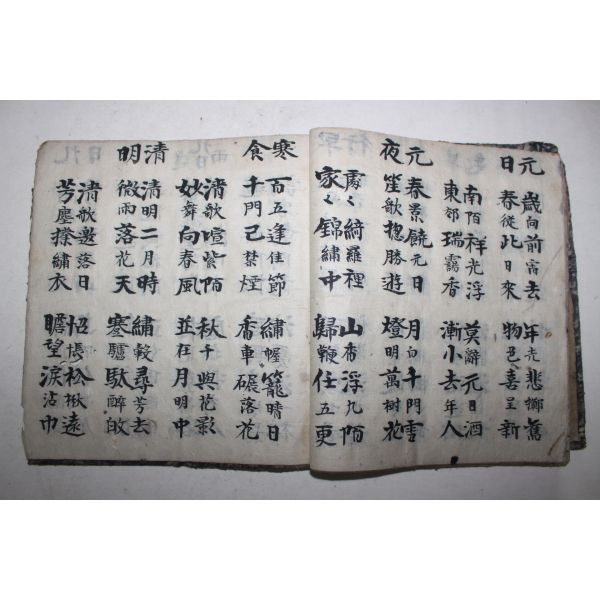 元日
歲向前宵去
春從此日來
年光悲擲舊
物色喜呈新
南陌祥光浮
東郊瑞靄香
莫辭元日酒
漸小去年人
元夜
春景饒元日
笙歌惣勝遊
月白千門雪
燈明萬树花
處〻綺羅裡
家〻錦繡中
山香浮九陌
歸鞭任五更
寒食
百五逢佳節
千門已禁煙
繡幄籠晴日
香車碾落花
清歌喧紫陌
妙舞向春風
秋千與花影
並在月明中
清明
清明二月時
微雨落花天
繡轂尋芳去
寒驢駄醉皈
清歌邀落日
芳塵撲繡衣
怊悵松楸遠
瞻望淚沾巾